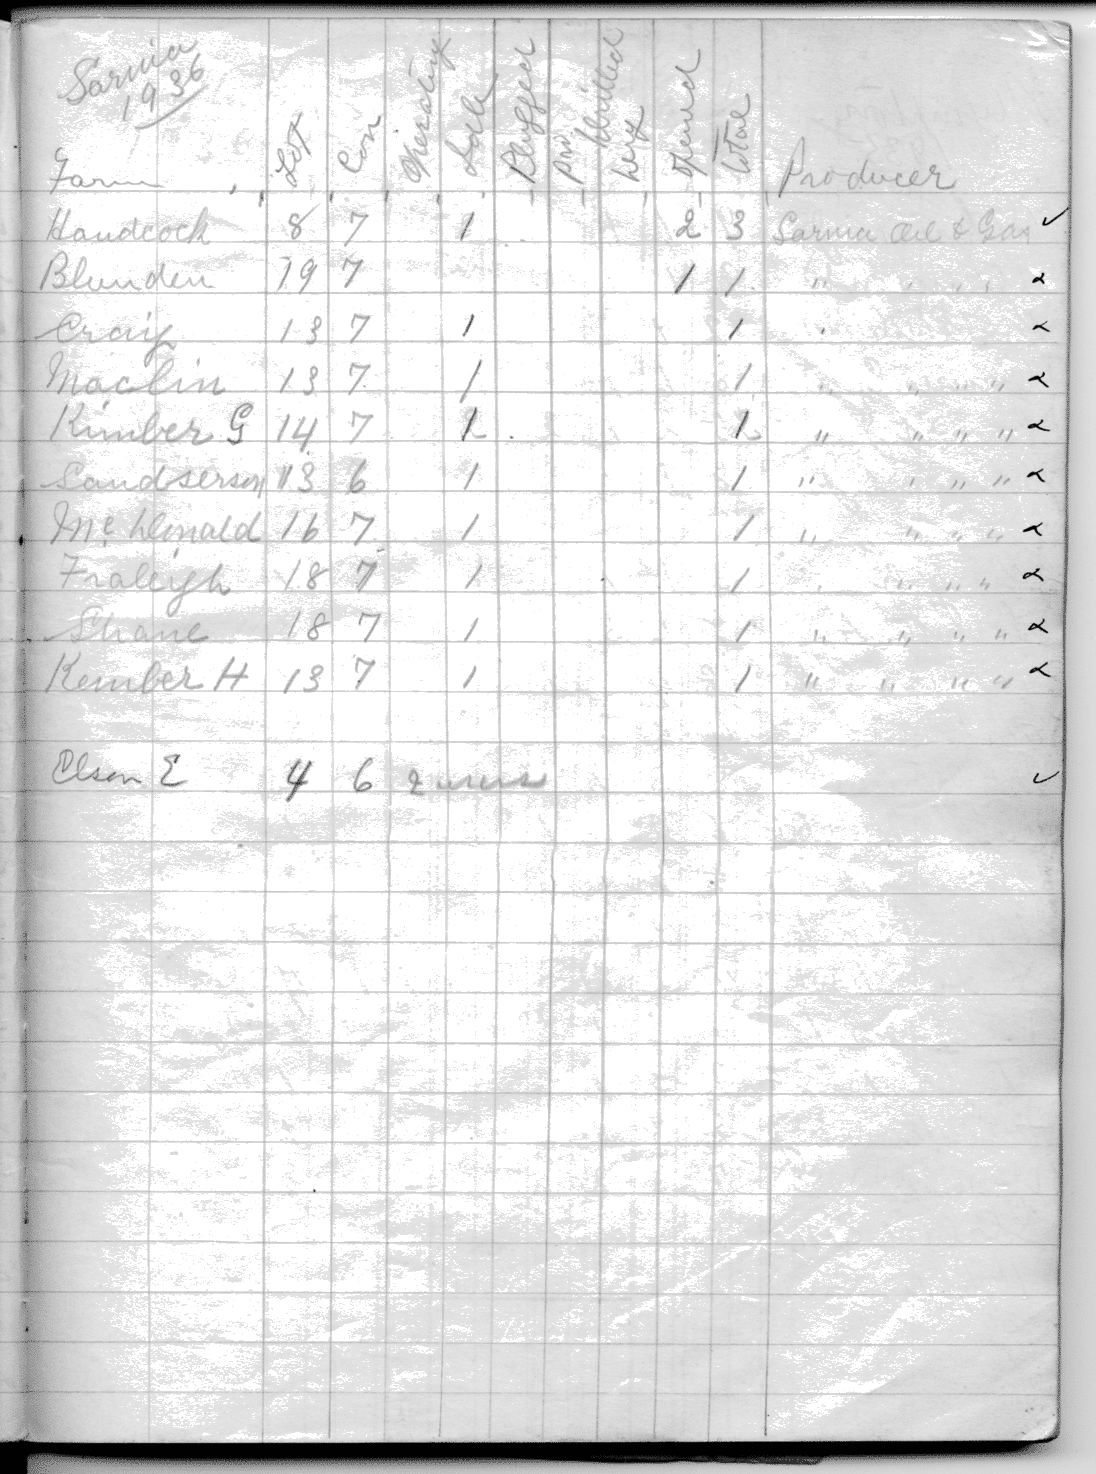 Sarnia
1936
Farm Lot Con Operating Idle Plugged Drilled Deep Opened Total Producer
Handcock 8 7 1 2 3 Sarnia Oil & Gas ✓
Blunden 19 7 1 1 " " " "
Craig 13 7 1 1 "
Maclin 13 7 1 1 " " " "
Kimber G 14 7 1 1 " " " "
Sandserson 13 6 1 1 " " " "
Mc Donald 16 7 1 1 " " " "
Fraleigh 18 7 1 1 " " " "
Shane 18 7 1 1 " " " "
Kember H 13 7 1 1 " " " "
Elson E 4 6 2 ✓